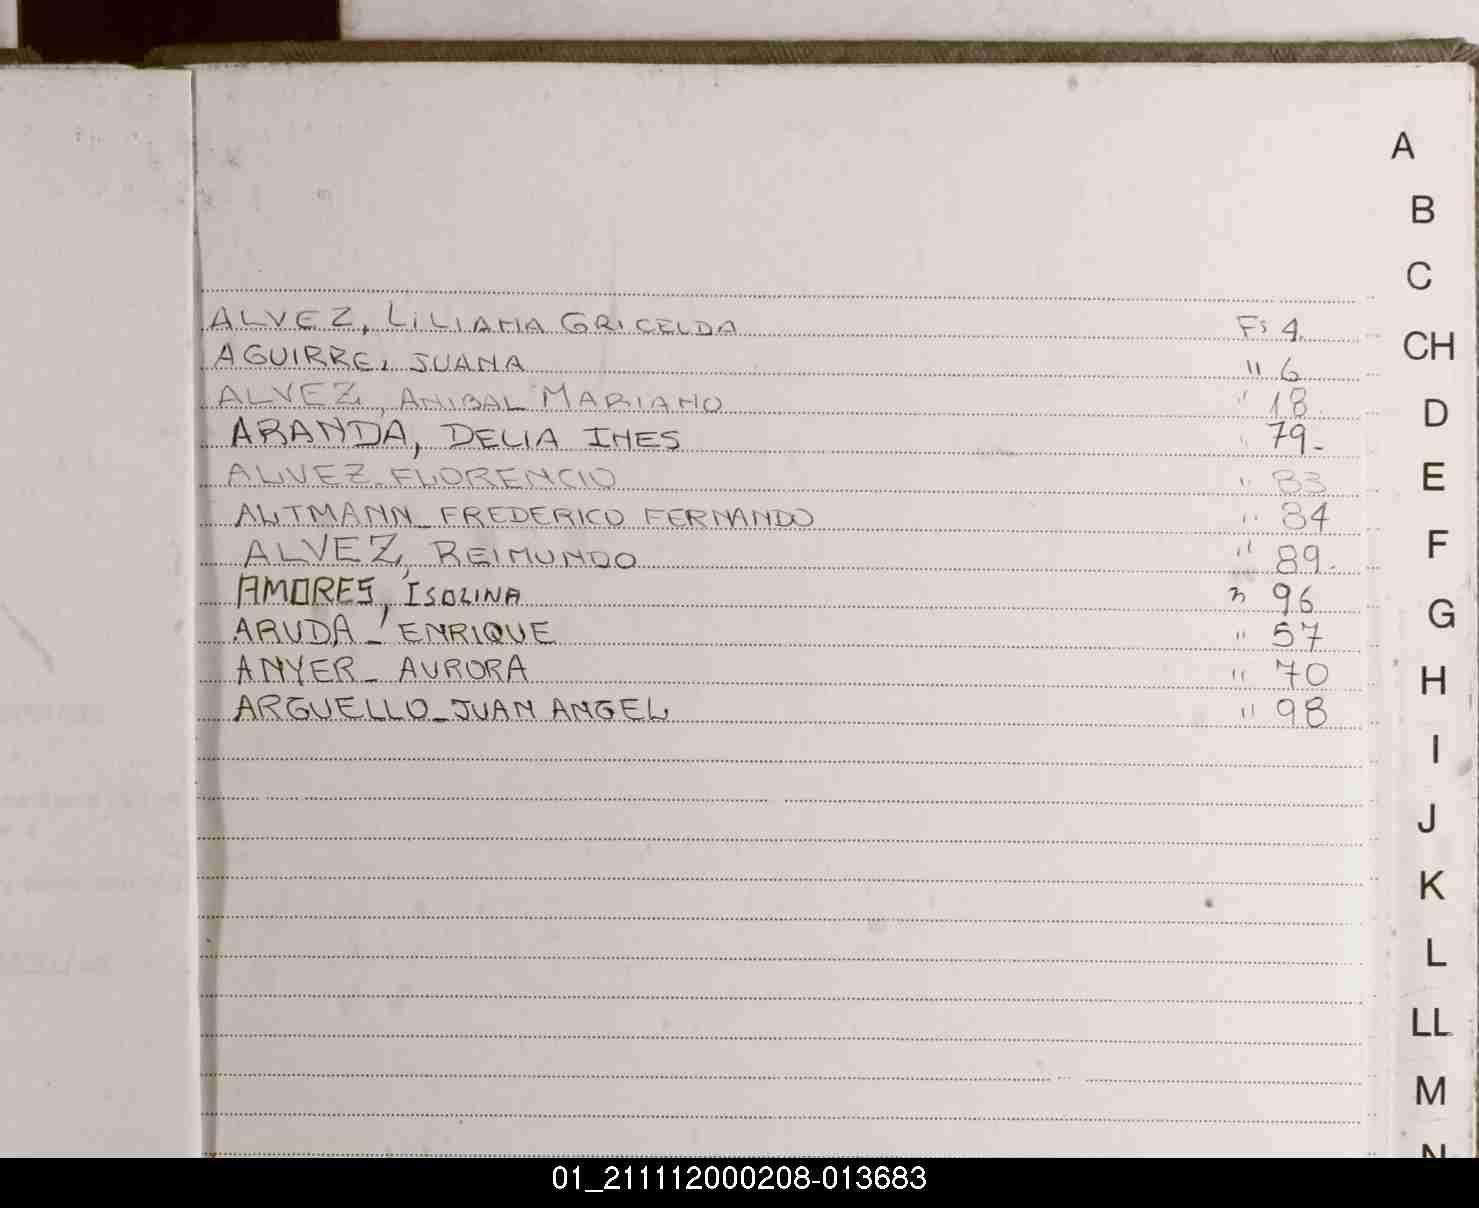 A
B
C
ALVEZ, LILIANA GRICELDA Fs 4.
CH
AGUIRRE, JUANA " 6
ALVEZ, ANIBAL MARIANO " 18
D
ARANDA, DELIA INES " 79-
ALVEZ-FLORENCIO " 83
E
ALTMANN-FREDERICO FERNANDO " 84
ALVEZ, REIMUNDO " 89-
F
AMORES, ISOLINA " 96
G
ARUDA-ENRIQUE " 57
ANYER-AURORA " 70
H
ARGUELLO-JUAN ANGEL " 98
I
J
K
L
LL
M
N
01_211112000208-013683